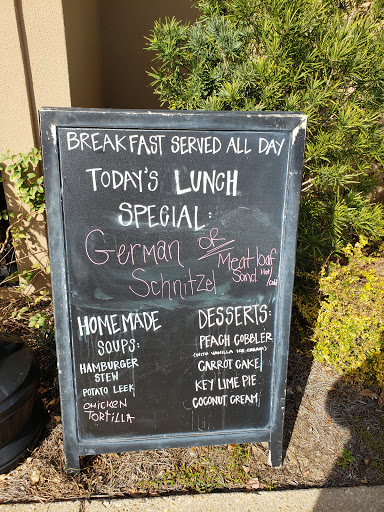 BREAKFAST SERVED ALL DAY
TODAY'S LUNCH
SPECIAL:
German
Schnitzel
of
Meatloaf
Sand Hot/
Cold
HOMEMADE
SOUPS:
HAMBURGER
STEW
POTATO LEEK
CHICKEN
TORTILLA
DESSERTS:
PEACH COBBLER
(WITH VANILLA ICE CREAM)
CARROT CAKE
KEY LIME PIE
COCONUT CREAM